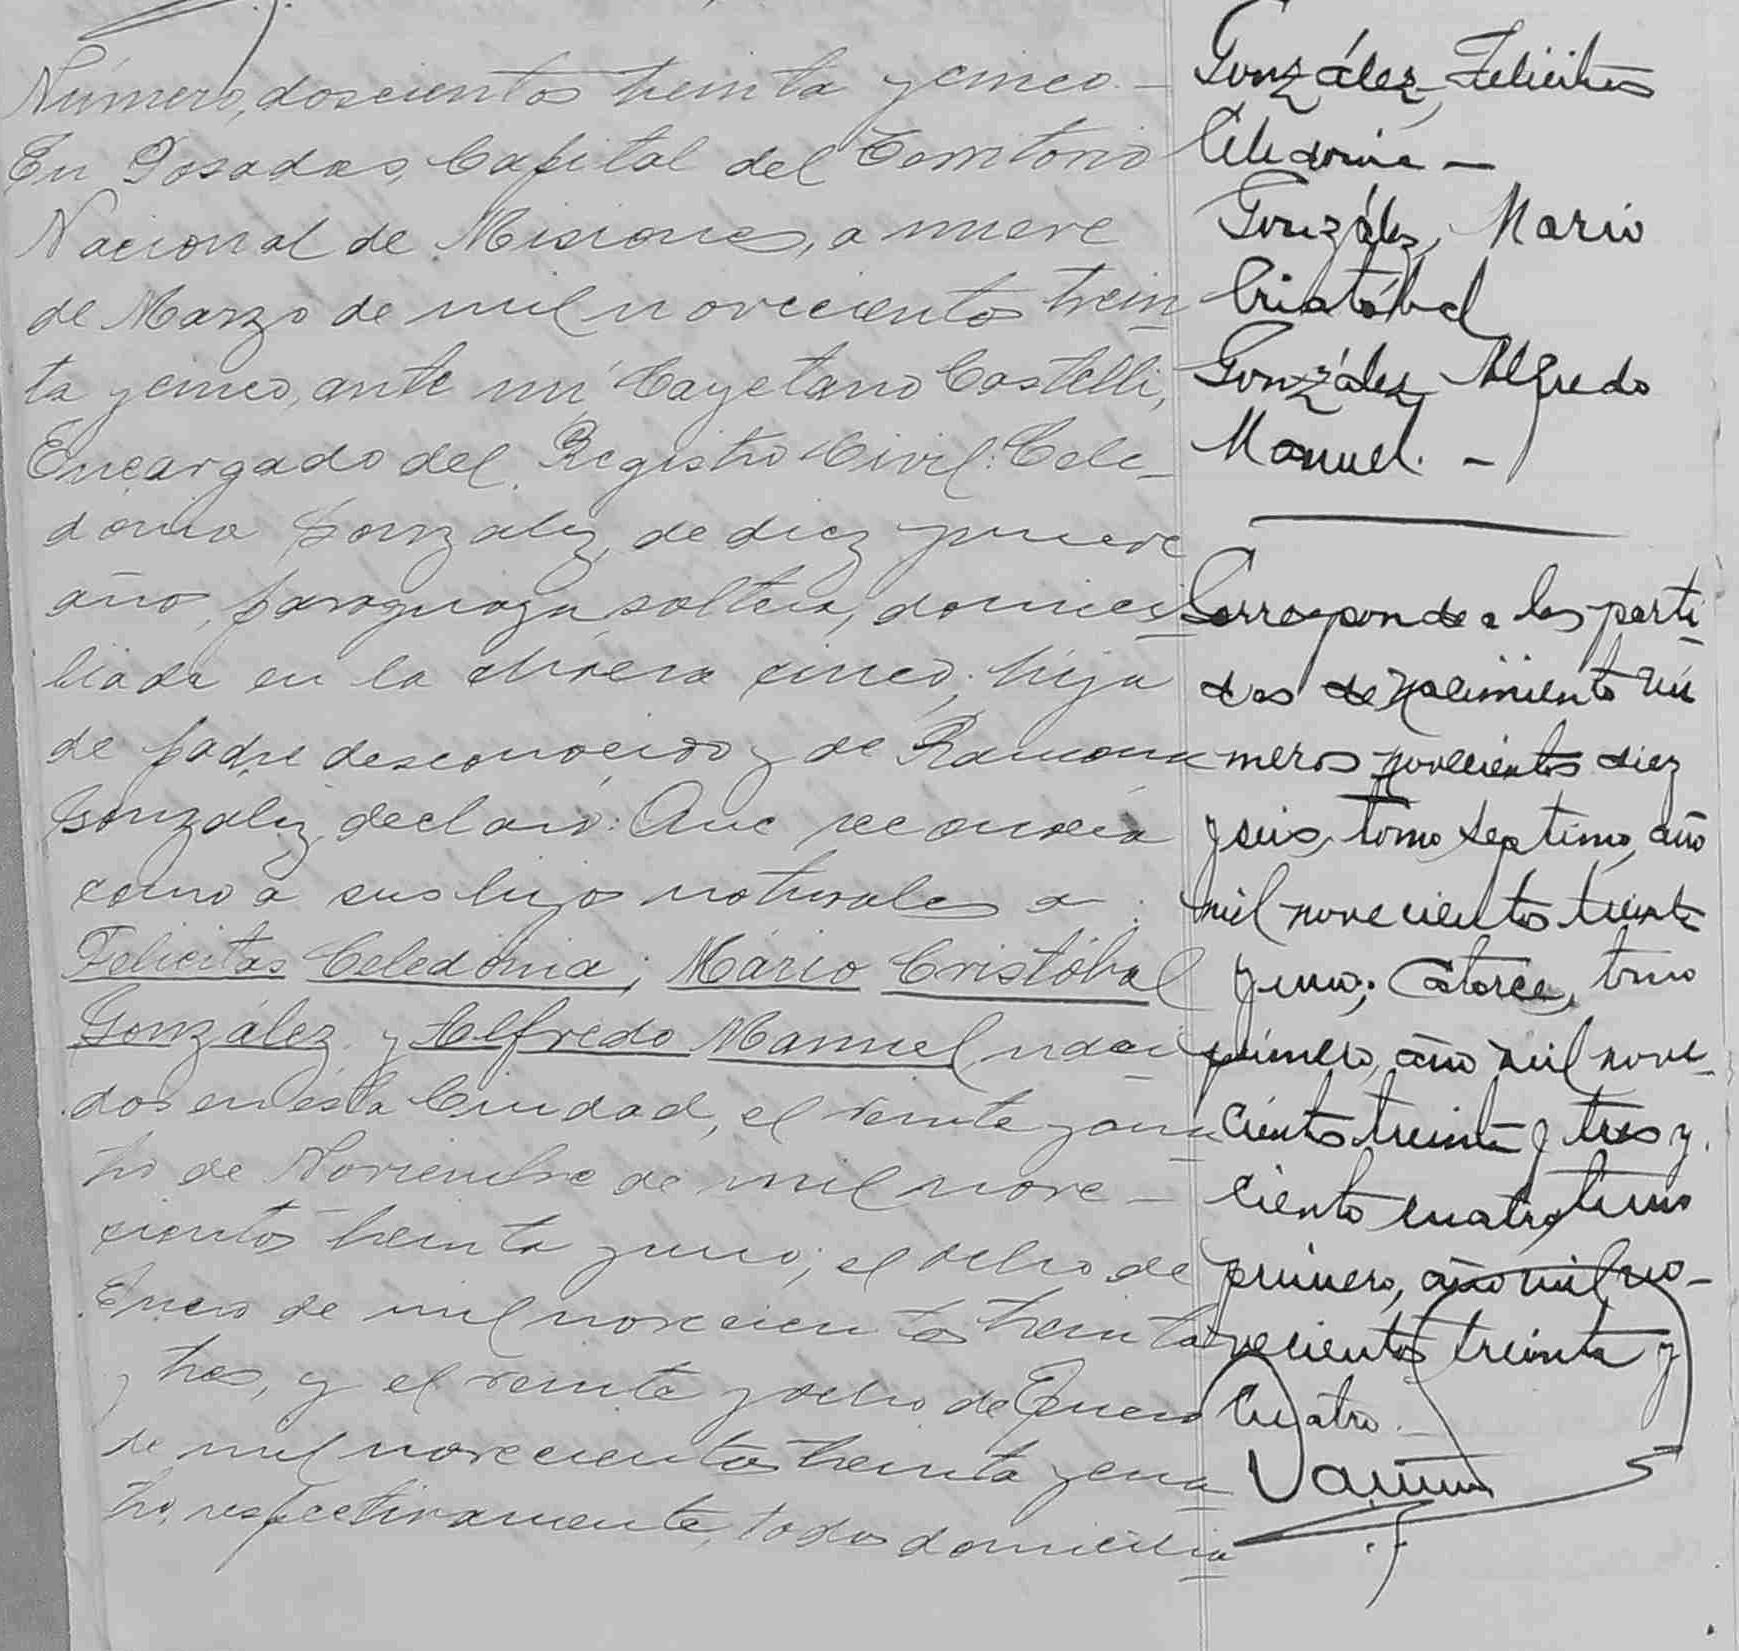 Número, doscientos treinta y cinco.—
En Posadas, Capital del Territorio
Nacional de Misiones, a nueve
de Marzo de mil novecientos trein
ta y cinco, ante mí Cayetano Castelli,
Encargado del Registro Civil: Cele-
donia Gonzalez, de diez y nueve
año, paraguaya soltera, domici
liada en la chacra cinco; hija
de padre desconocido y de Ramona
Gonzalez, declaró: Que reconocía
como a sus hijos naturales a:
Felicitas Celedónia; Mário Cristóbal
González y Alfredo Manuel, naci
dos en ésta Ciudad, el veinte y cua
tro de Noviembre de mil nove-
cientos treinta y uno; el ocho de
Enero de mil novecientos treinta
y tres, y el veinte y ocho de Enero
de mil novecientos treinta y cua
tro, respectivamente, todos domicilia
González, Felicitas
Celedonia —
González, Mario
Cristóbal
González, Alfredo
Manuel. —
Corresponde a las parti
das de nacimiento nú
meros novecientos diez
y seis, tomo septimo, año
mil novecientos treinta
y uno; catorce, tomo
primero, año mil nove-
cientos treinta y tres y
ciento cuatro, tomo
primero, año mil no-
vecientos treinta y
cuatro.—